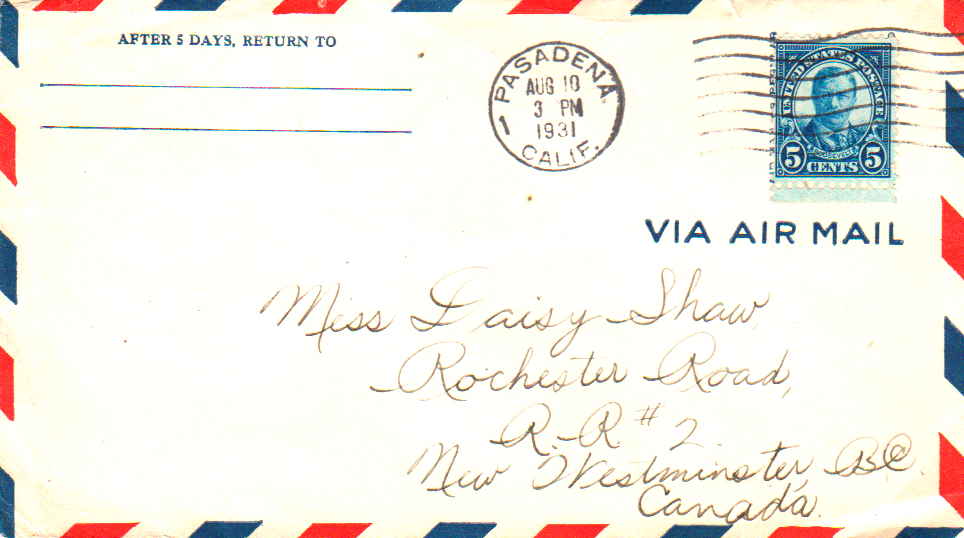 AFTER 5 DAYS, RETURN TO
PASADENA
AUG 10
3 PM
1931
1
CALIF.
UNITED STATES POSTAGE
ROOSEVELT
5 CENTS 5
VIA AIR MAIL
Miss Daisy Shaw
Rochester Road,
R.R. # 2.
New Westminster, BC.
Canada.